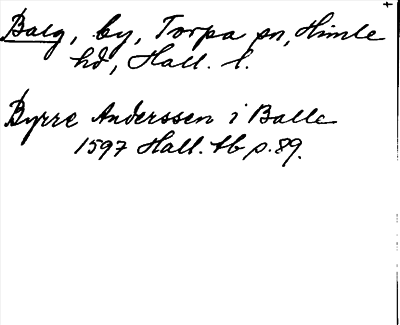 Balg, by, Torpa sn, Himle
hd, Hall. l.
Byrre Anderssen i Balle
1597 Hall. tb p. 89.